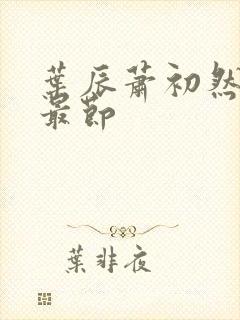 葉辰蕭初然
最節
葉非夜